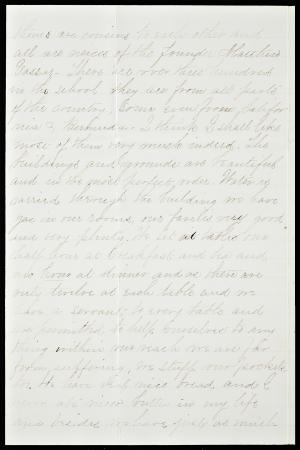 them are cousins to each other and
all are nieces of the founder Matthew
Vassar. There are over three hundred
in the school. They are from all parts
of the country. Some even from Califor
nia & Bermuda. I think I shall like
most of them very much indeed. The
buildings and grounds are beautiful
and in the most perfect order. Water is
carried through the building we have
gas in our rooms, our fare is very good
and very plenty. We sit at table one
half hour at breakfast and tea and
an hour at dinner and as there are
only twelve at each table and we
have a servant to every table and
are permitted to help ourselves to any
thing within our reach we are far
from suffering. We stuff our pockets
too. We have such nice bread, and I
never ate nicer butter in my life
and besides we have just as much